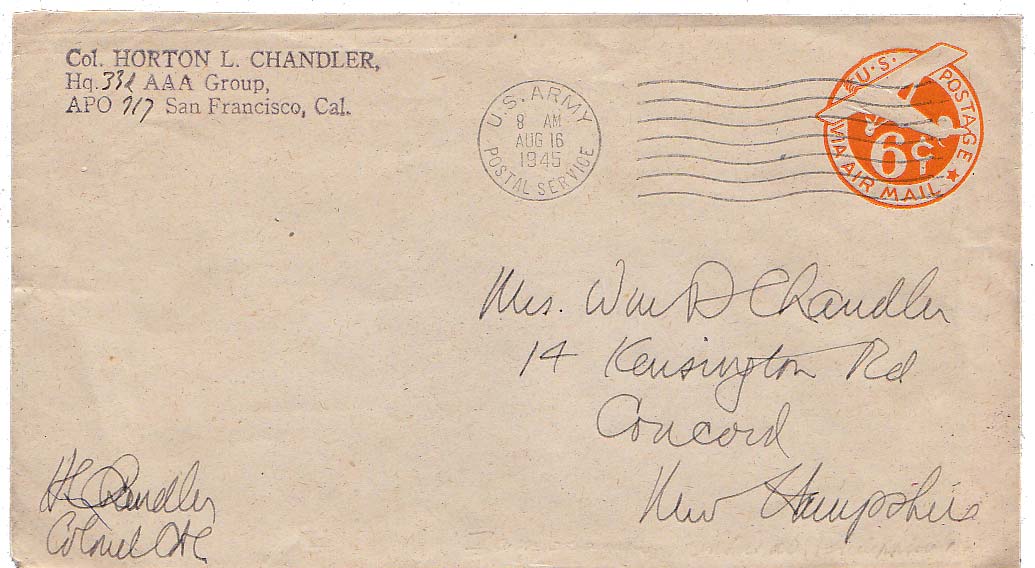 Col. HORTON L. CHANDLER,
Hq. 33d AAA Group,
APO 717 San Francisco, Cal.
U.S. ARMY
8 AM
AUG 16
1945
POSTAL SERVICE
U.S. POSTAGE
6¢
VIA AIR MAIL
Mrs. Wm D Chandler
14 Kensington Rd
Concord
New Hampshire
HL Chandler
Colonel